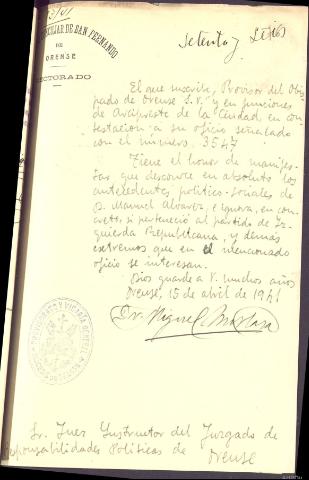 CONCILIAR DE SAN FERNANDO
DE
ORENSE
RECTORADO
Setenta y
El que suscribe, Provisor del Obis-
pado de Orense S.P. y en funciones
de Arcipreste de la Ciudad, en con-
testación a su oficio señalado
con el número 3547
Tiene el honor de manifes-
tar que desconoce en absoluto los
antecedentes político-sociales de
D. Manuel Alvarez, e ignora, en con-
creto, si perteneció al partido de Iz-
quierda Republicana, y demás
extremos que en el mencionado
oficio se interesan.
Dios guarde a V. muchos años
Orense, 15 de abril de 1941
Dr. Miguel
Sr. Juez Instructor del Juzgado de
Responsabilidades Políticas de Orense